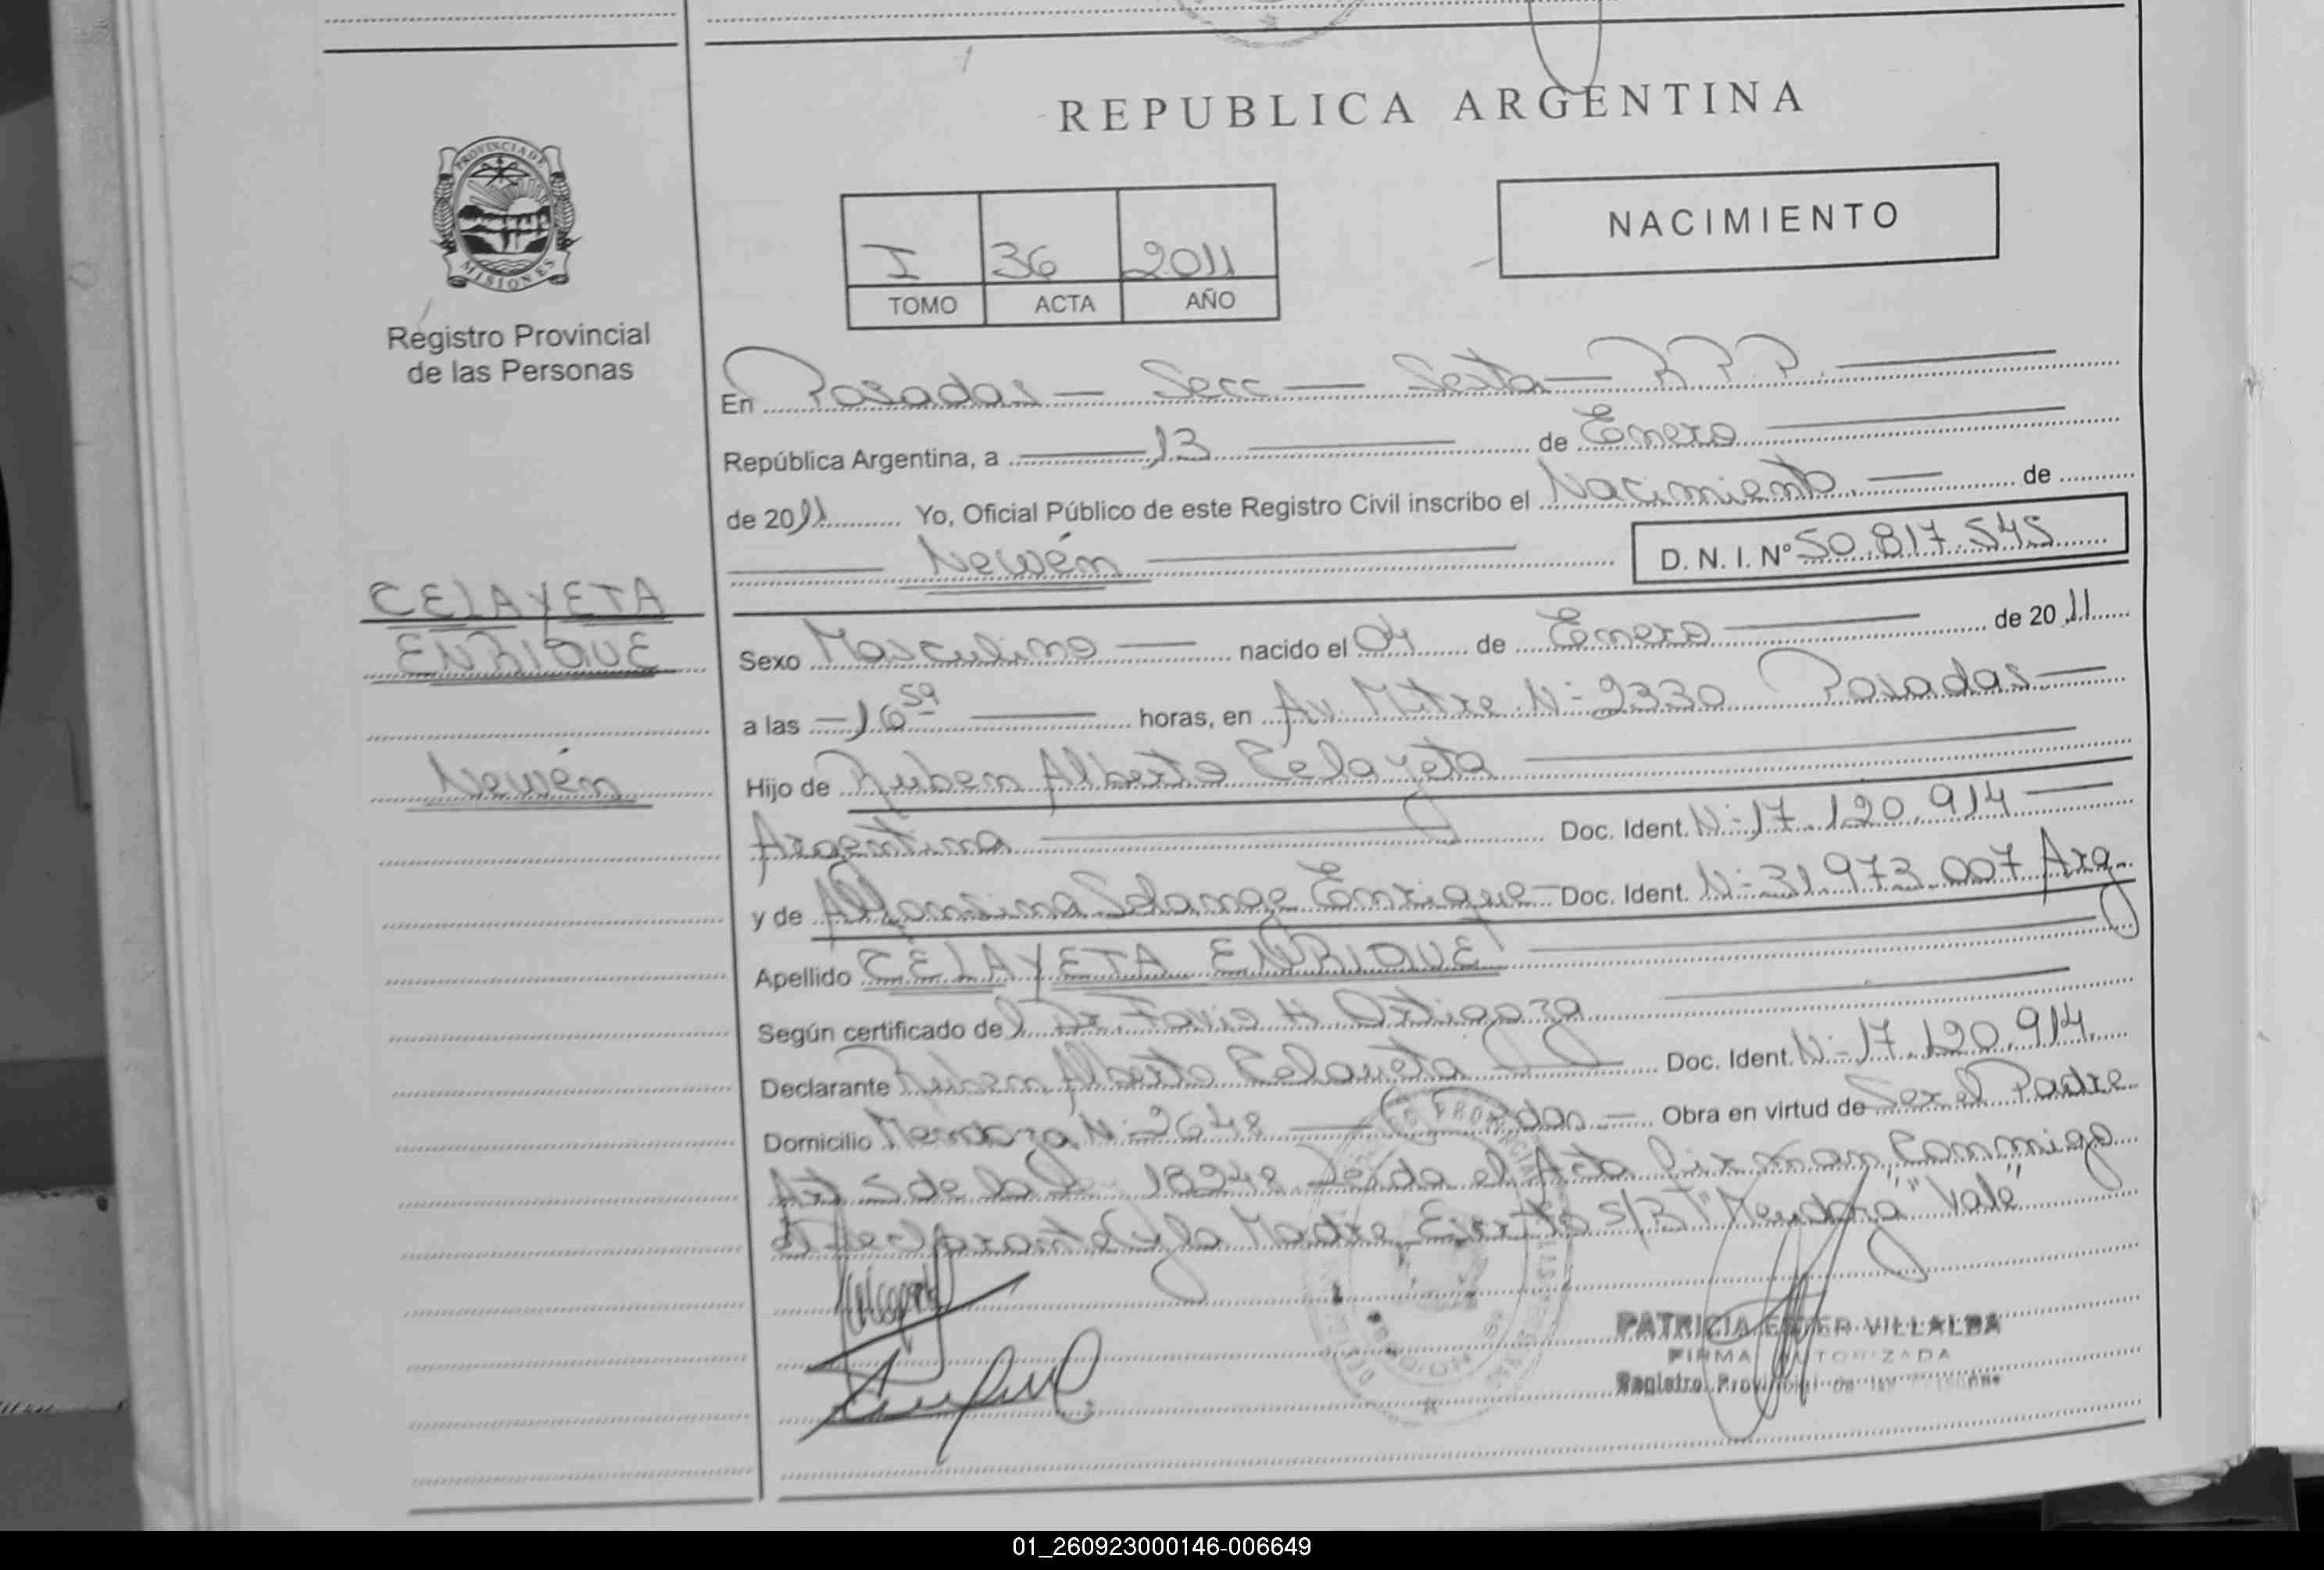 REPUBLICA ARGENTINA
PROVINCIA DE
MISIONES
Registro Provincial
de las Personas
NACIMIENTO
I 36 2011
TOMO ACTA AÑO
En Posadas — Secc. — Sexta — R.P.P.
República Argentina, a 13 de Enero
de 2011 Yo, Oficial Público de este Registro Civil inscribo el Nacimiento. — de
Newén
D. N. I. Nº 50.817.545
CELAYETA
ENRIQUE
Newén
Sexo Masculino — nacido el 04 de Enero de 2011
a las — 16 59 horas, en Av. Mitre N: 2330 Posadas —
Hijo de Ruben Alberto Celayeta
Argentino Doc. Ident. N: 17.120.914
y de Alfonsina Enrique — Doc. Ident. N: 31.973.007 Arg.
Apellido CELAYETA ENRIQUE
Según certificado de
Declarante Ruben Alberto Celayeta Doc. Ident. N: 17.120.914
Domicilio N: 2648 — Obra en virtud de Ser el Padre
Art 2 de la 18248 Leida el Acta firman Conmigo
la Madre s/R "Mendoza" "Vale"
PATRICIA ESTER VILLALBA
FIRMA AUTORIZADA
Registro Provincial de las Personas
01_260923000146-006649